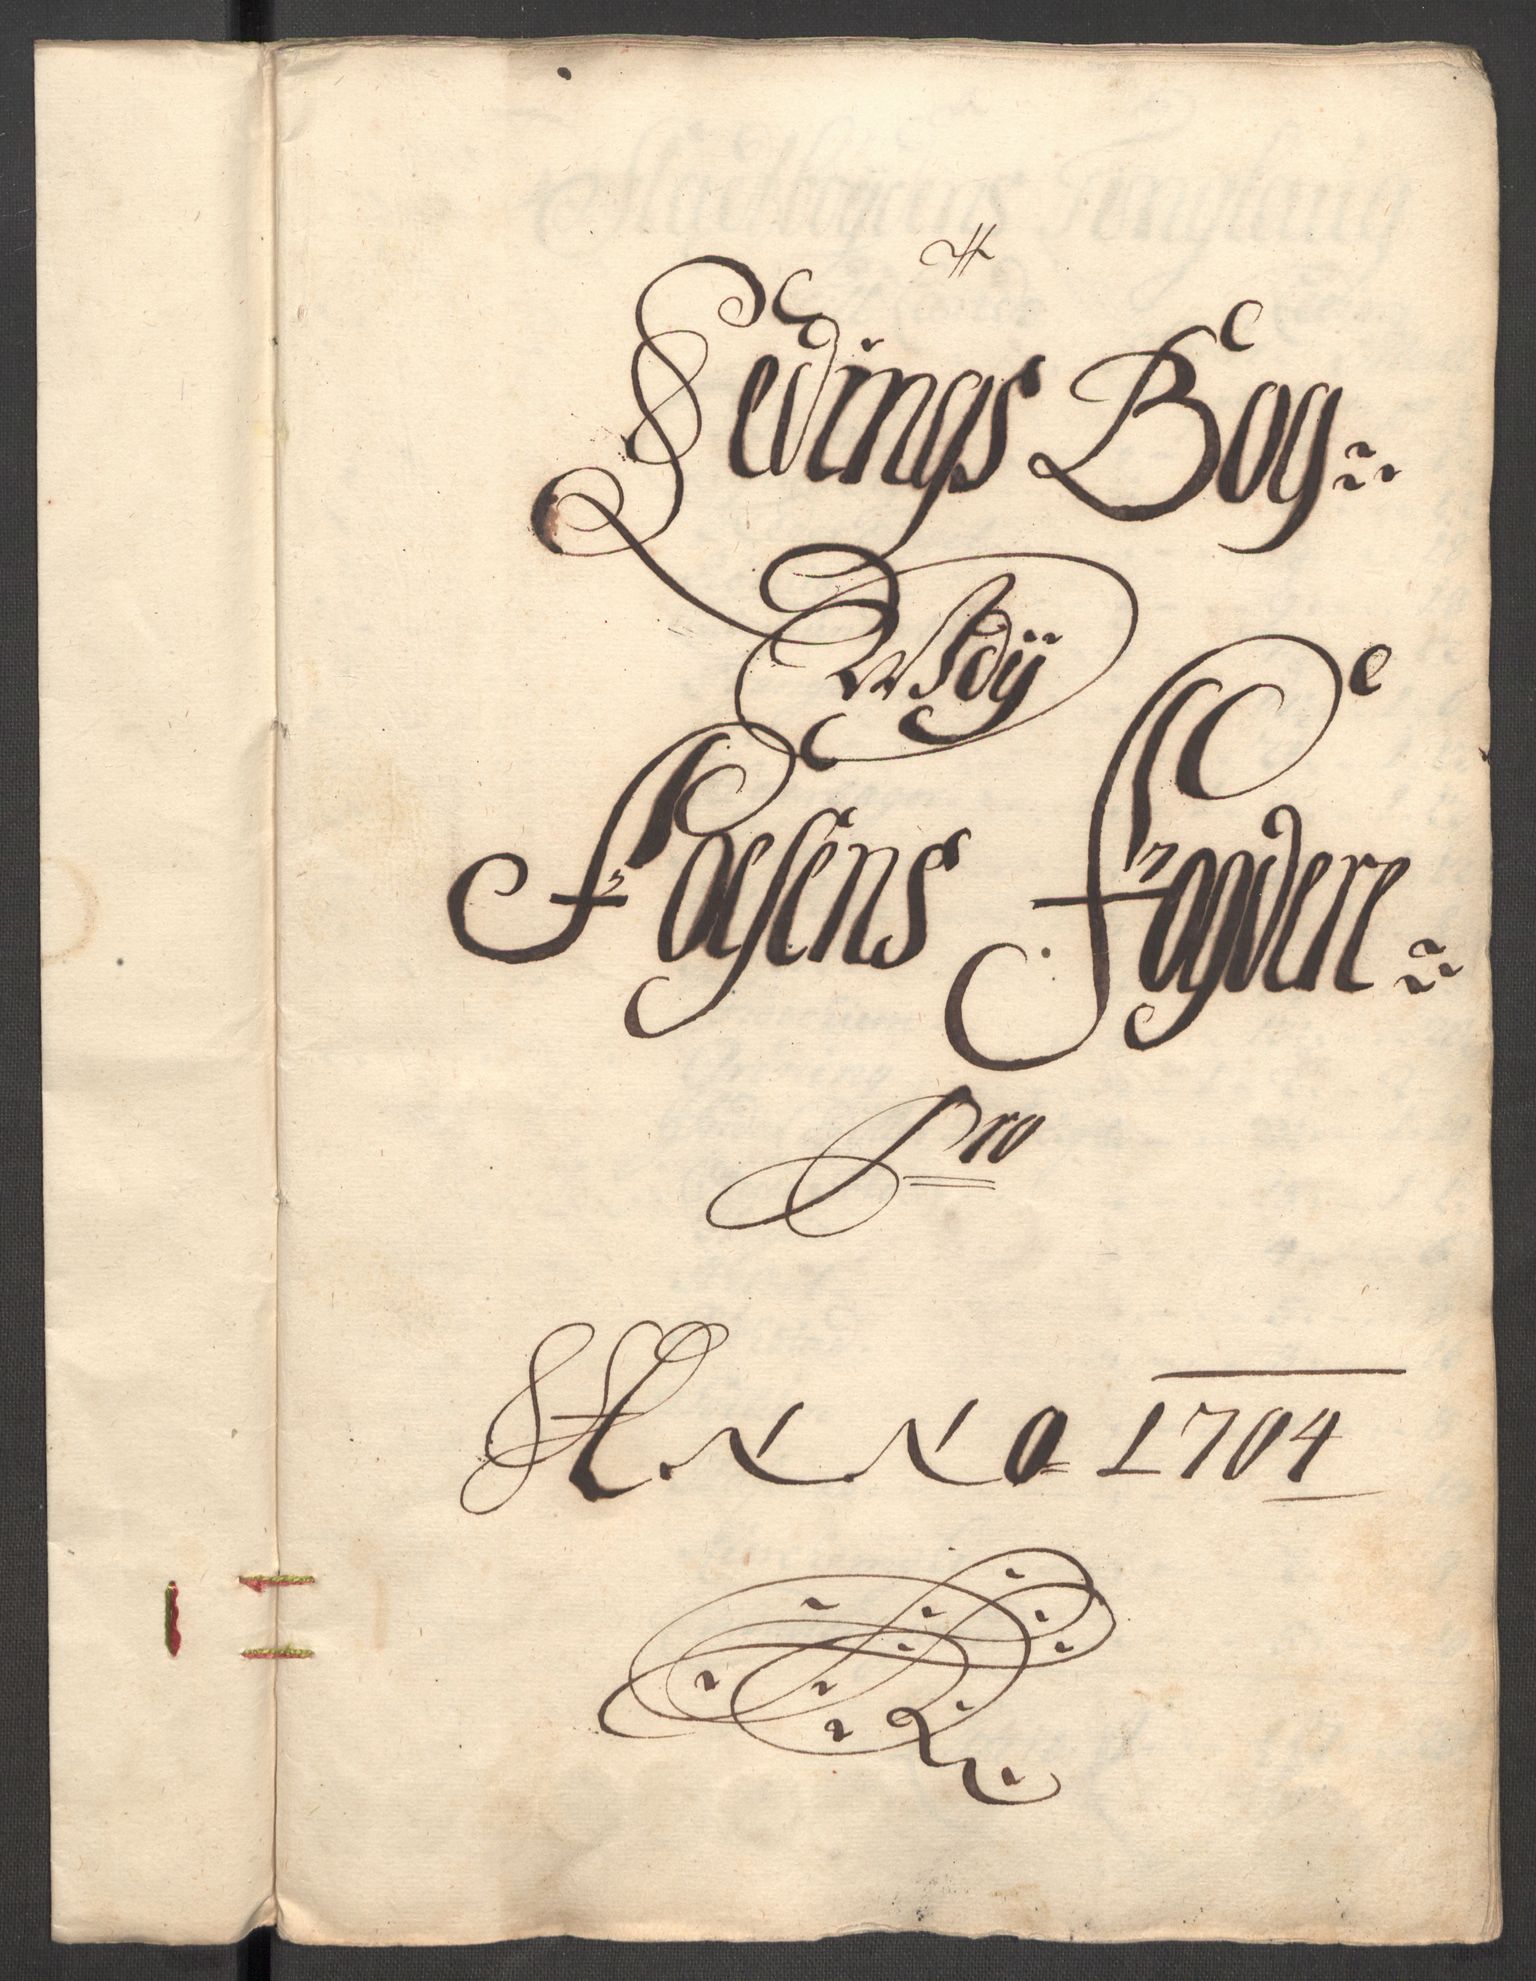 Ledings Bog
Udj
Fosens Fogdere
Pro
Anno 1704